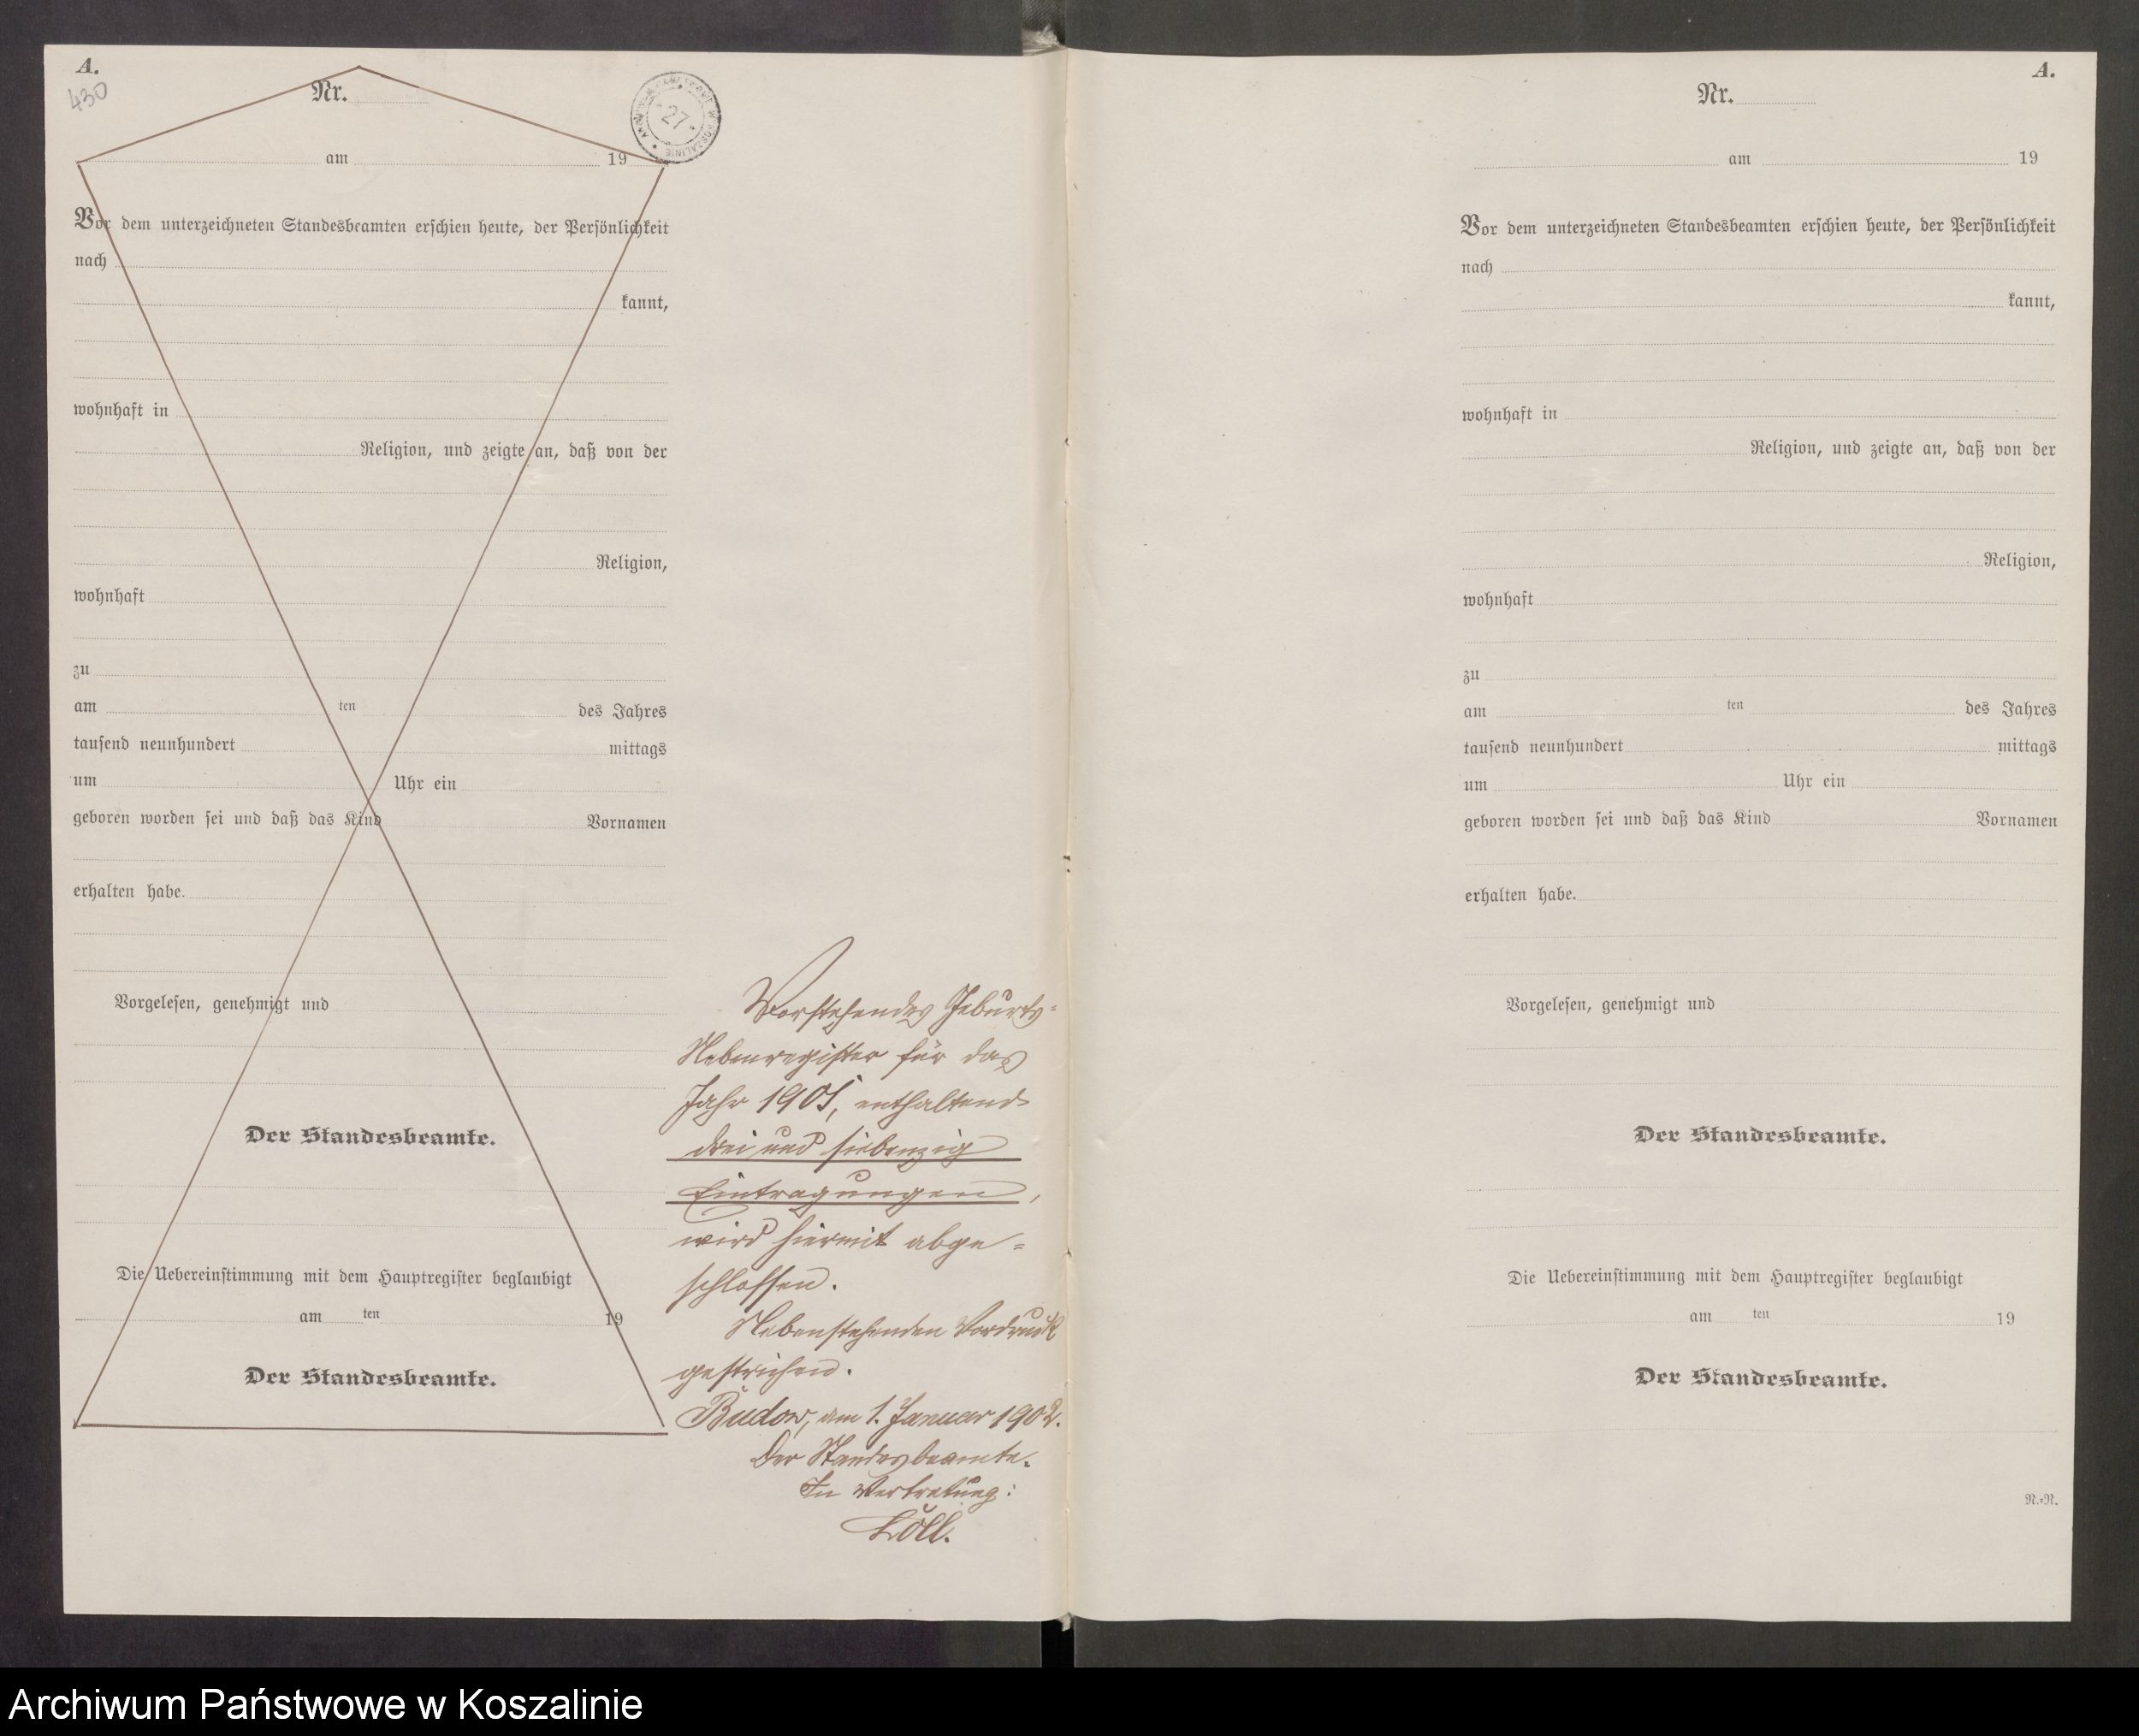 A.
430
Nr.
27
am 19
Vor dem unterzeichneten Standesbeamten erschien heute, der Persönlichkeit
nach
kannt,
wohnhaft in
Religion, und zeigte an, daß von der
Religion,
wohnhaft
zu
am ten des Jahres
tausend neunhundert mittags
um Uhr ein
geboren worden sei und daß das Kind Vornamen
erhalten habe.
Vorgelesen, genehmigt und
Der Standesbeamte.
Die Uebereinstimmung mit dem Hauptregister beglaubigt
am ten 19
Der Standesbeamte.
Vorstehendes Geburts-
Nebenregister für das
Jahr 1901, enthaltend
drei und siebenzig
Eintragungen,
wird hiermit abge-
schlossen.
Nebenstehenden Vordruck
gestrichen.
Budow, am 1. Januar 1902.
Der Standesbeamte.
In Vertretung:
A.
Nr.
am 19
Vor dem unterzeichneten Standesbeamten erschien heute, der Persönlichkeit
nach
kannt,
wohnhaft in
Religion, und zeigte an, daß von der
Religion,
wohnhaft
zu
am ten des Jahres
tausend neunhundert mittags
um Uhr ein
geboren worden sei und daß das Kind Vornamen
erhalten habe.
Vorgelesen, genehmigt und
Der Standesbeamte.
Die Uebereinstimmung mit dem Hauptregister beglaubigt
am ten 19
Der Standesbeamte.
N.=N.
Archiwum Państwowe w Koszalinie